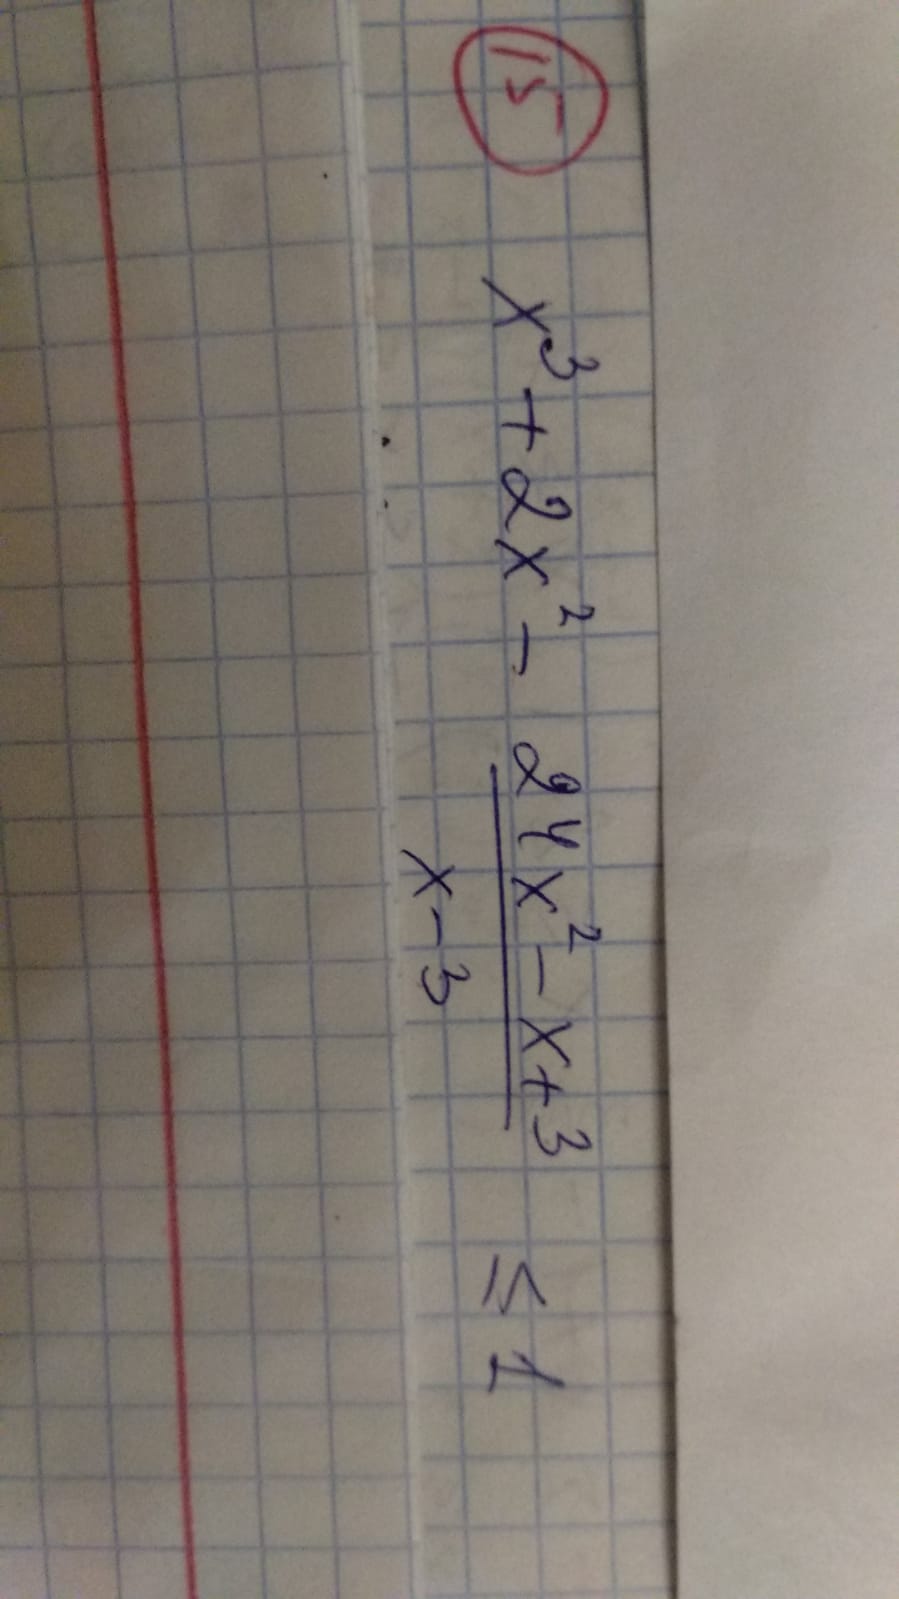 15 x³ + 2x² - (24x² - x + 3)/(x - 3) ≤ 1